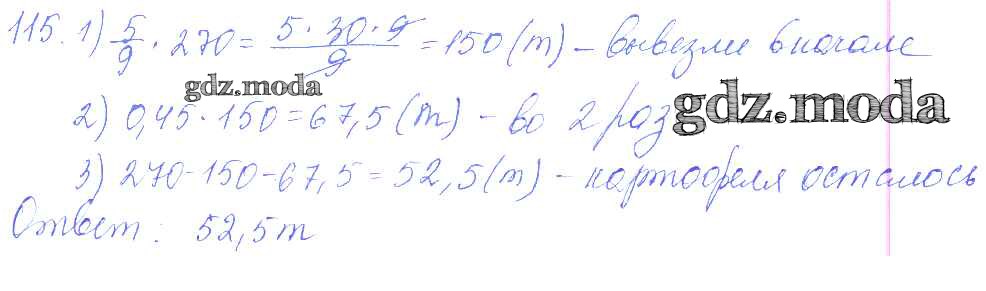 115. 1) 5/9 · 270 = 5 · 30 · 9 / 9 = 150 (т) – вывезли вначале
gdz.moda
2) 0,45 · 150 = 67,5 (т) – во 2 раз
gdz.moda
3) 270 - 150 - 67,5 = 52,5 (т) – картофеля осталось
Ответ: 52,5 т